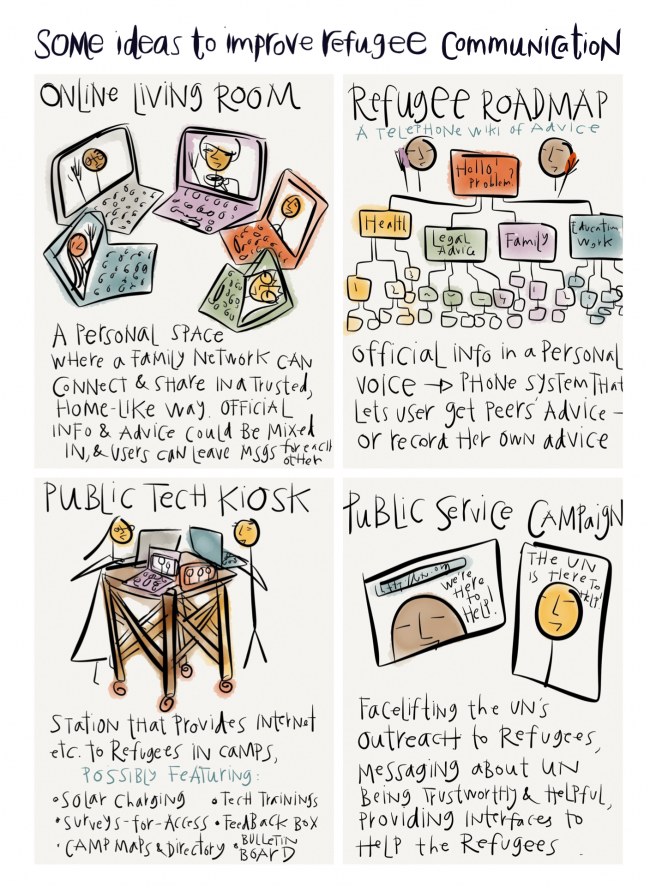 SOME ideas to improve refugee Communication
ONLINE LIVING ROOM
A Personal SPACE
WHERE a FAMILY NETWORK CAN
CONNECT & SHARE IN a TRUSTED,
HOME-LIKE WAY. OFFICIAL
INFO & ADVICE COULD BE MIXED
IN, & USERS CAN LEAVE MSGS for each
other
Refugee ROADMAP
A TELEPHONE WIKI OF ADVICE
Hello!
Problem?
Health
Legal
Advice
Family
Education
Work
Official info in a Personal
VOICE → PHONE SYSTEM THAT
Lets user get Peers' Advice –
or record Her own advice
PUBLIC TECH KIOSK
STATION THAT Provides INTERNET
etc. to Refugees IN CAMPS,
POSSIBLY FEATURING:
• SOLAR CHARGING • TECH TRAININGS
• SURVEYS-for-ACCESS • FEEDBACK BOX
• CAMP MAPS & DIRECTORY • BULLETIN
BOARD
PUBLIC SERVICE CAMPAIGN
We're
Here
to
HELP!
THE UN
IS HERE To
HELP!
FACELIFTING THE UN'S
OUTREACH TO REFUGEES,
MESSAGING ABOUT UN
BEING TRUSTWORTHY & HELPFUL,
PROVIDING INTERFACES TO
HELP THE REFUGEES.